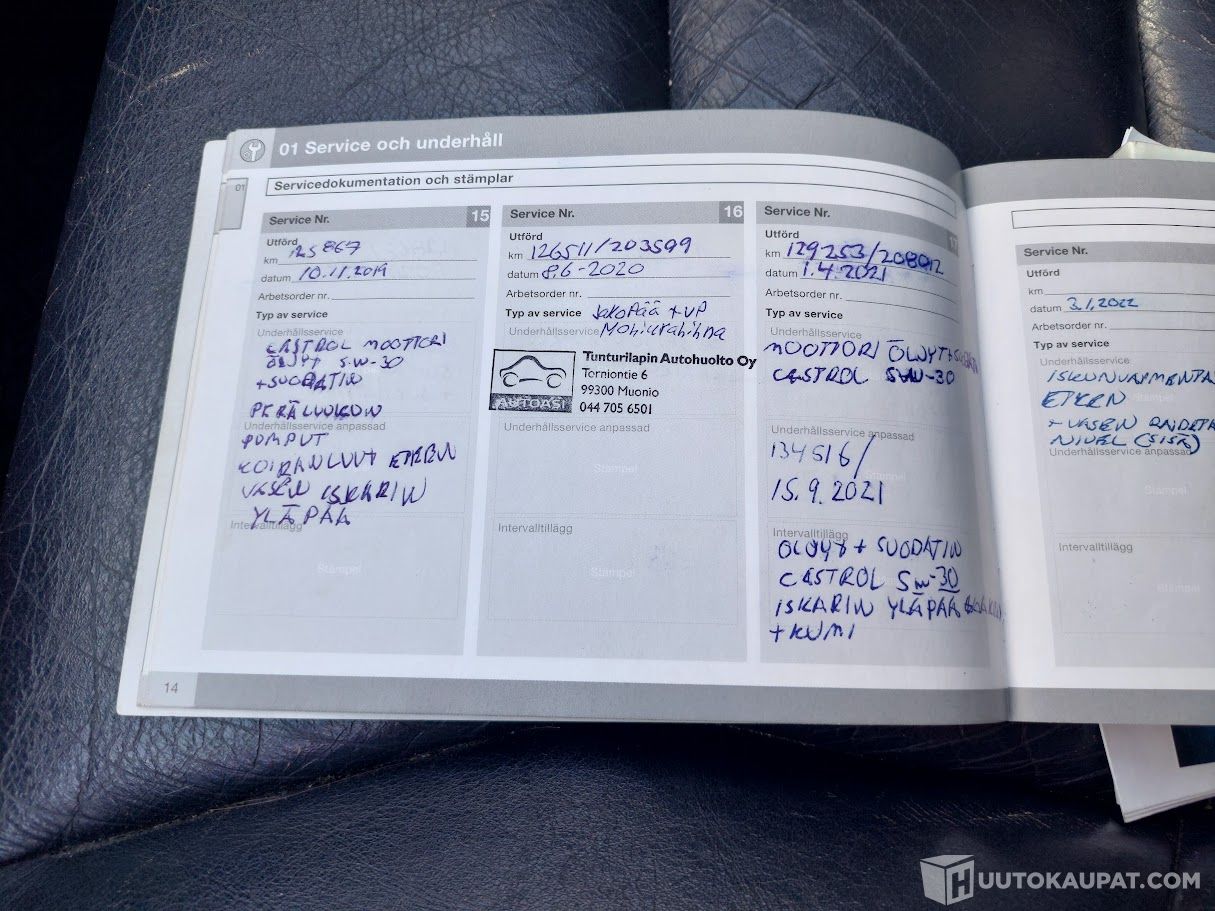 01 Service och underhåll
01
Servicedokumentation och stämplar
Service Nr. 15
Utförd
km 125867
datum 10.11.2019
Arbetsorder nr.
Typ av service
Underhållsservice
CASTROL MOOTTORI
ÖLJYT 5W-30
+SUODATIN
PERÄLUUKUN
Underhållsservice anpassad
PUMPUT
KOIRANLUUT ETEEN
VASEN ISKARIN
YLÄPÄÄ
Intervalltillägg
Stämpel
Service Nr. 16
Utförd
km 126511/203599
datum 8.6-2020
Arbetsorder nr.
Typ av service Jakopää + VP
Underhållsservice Moniurahihna
Tunturilapin Autohuolto Oy
Torniontie 6
99300 Muonio
044 705 6501
AUTOASI
Underhållsservice anpassad
Stämpel
Intervalltillägg
Stämpel
Service Nr. 17
Utförd
km 129253/208012
datum 1.4.2021
Arbetsorder nr.
Typ av service
Underhållsservice
MOOTTORI ÖLJYT+
CASTROL 5W-30
Underhållsservice anpassad
134516/
15.9.2021
Intervalltillägg
ÖLJYT + SUODATIN
CASTROL 5W-30
ISKARIN YLÄPÄÄ
+KUMI
14
Service Nr.
Utförd
km
datum 3.1.2022
Arbetsorder nr.
Typ av service
Underhållsservice
ISKUNVAIMENTA
ETEEN
+ VASEN RAIDETA
NIVEL (SISÄ)
Underhållsservice anpassad
Stämpel
Intervalltillägg
Stämpel
HUUTOKAUPAT.COM